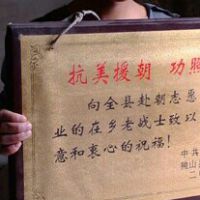 抗美援朝 功照
向全县赴朝志愿
业的在乡老战士致以
意和衷心的祝福!
中共
二